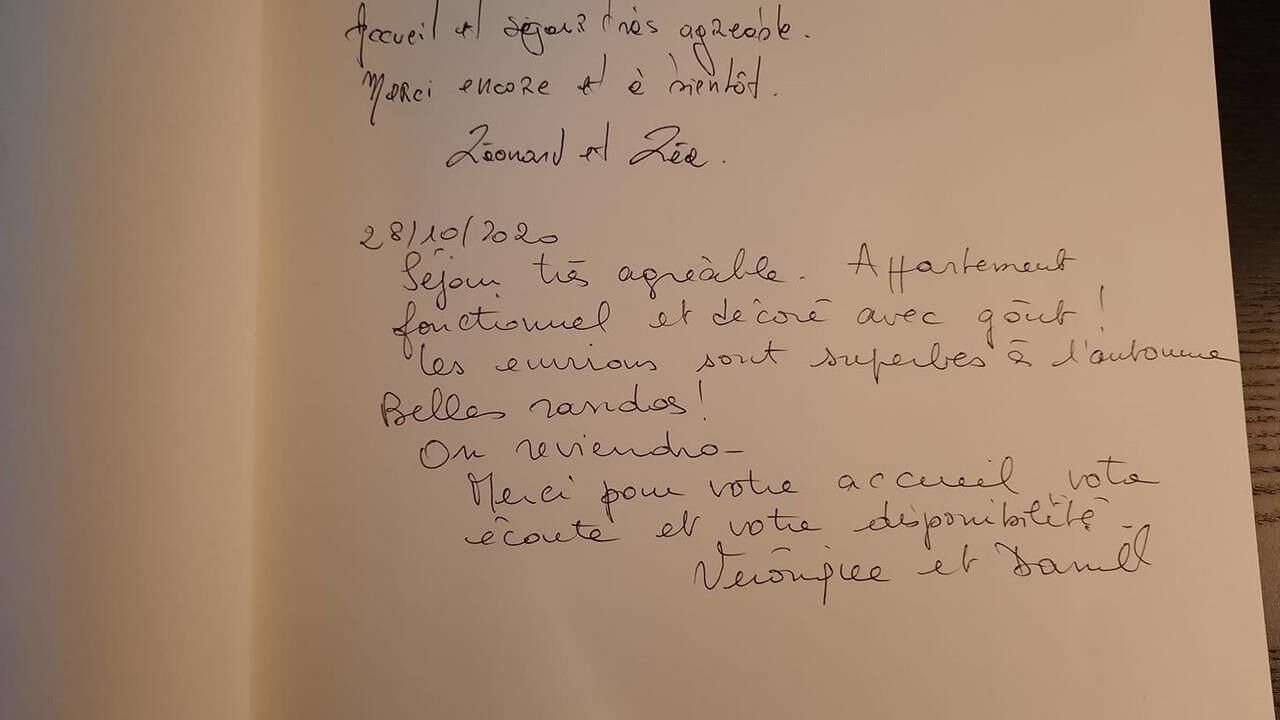 Accueil et séjour très agréable.
Merci encore et à bientôt.
Léonard et Zéa.
28/10/2020
Séjour très agréable. Appartement
fonctionnel et décoré avec goût !
les environs sont superbes à l'automne
Belles randos !
On reviendra -
Merci pour votre accueil votre
écoute et votre disponibilité.
Véronique et Daniel